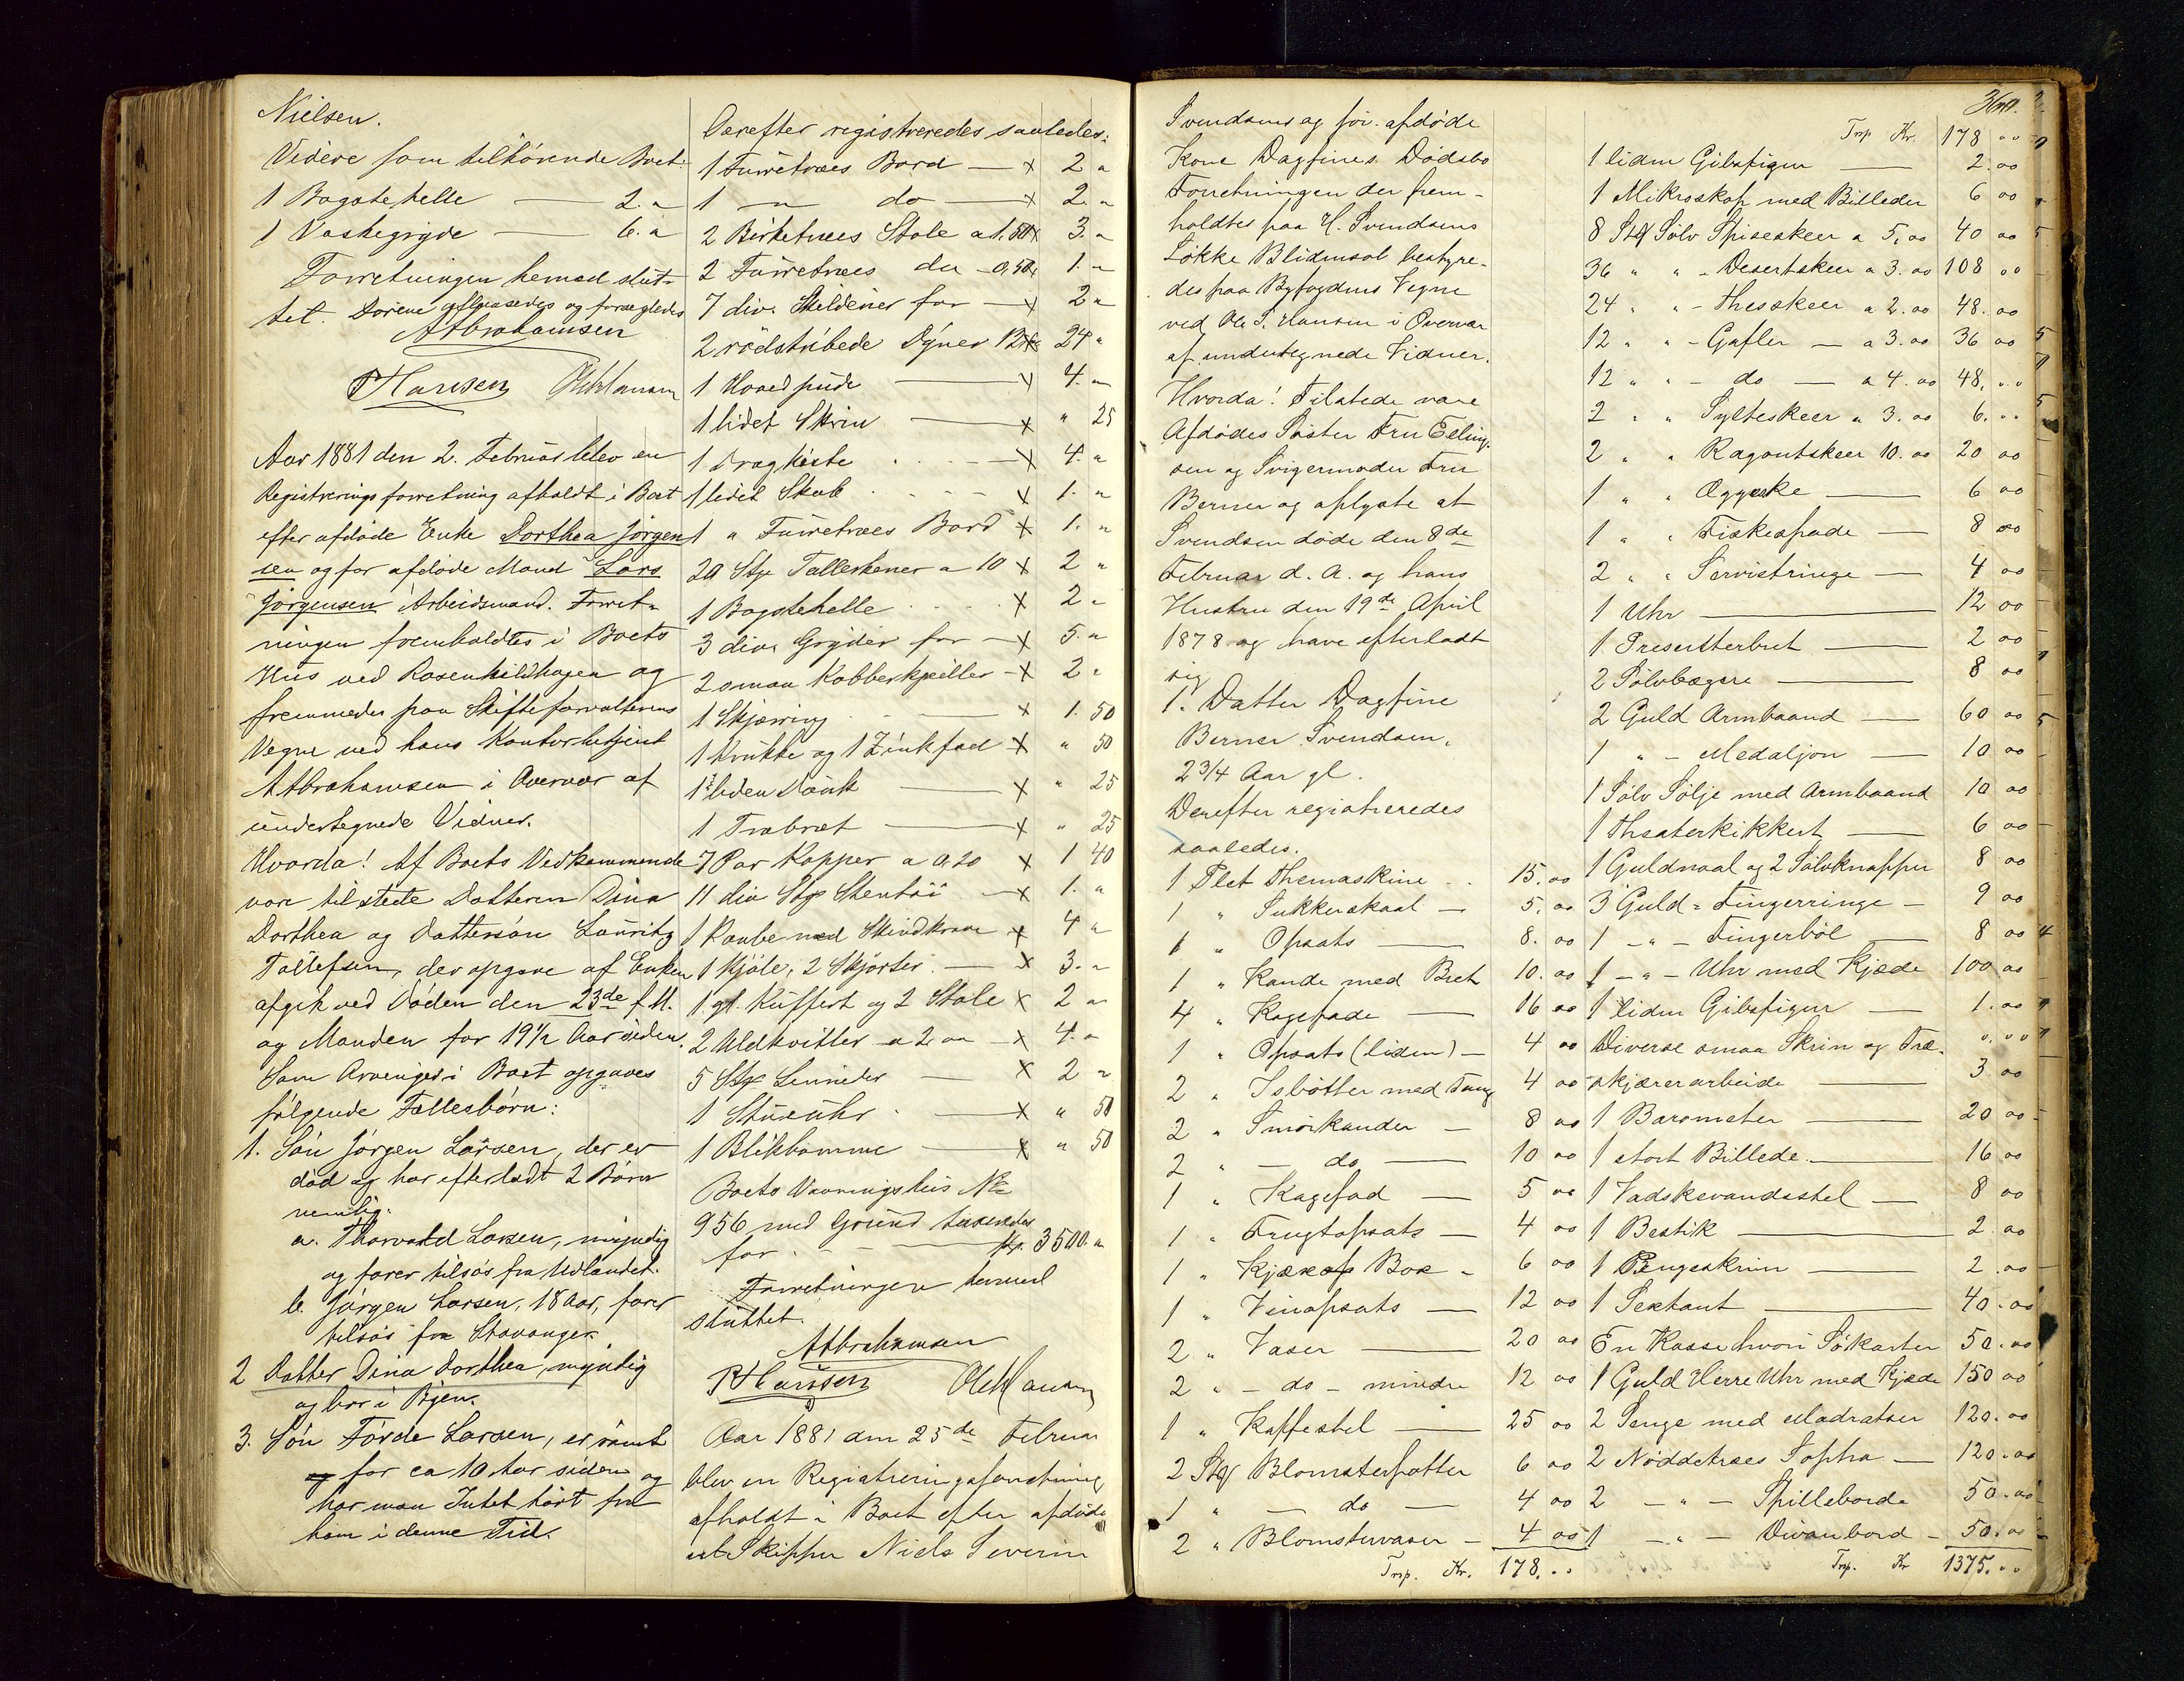 Nielsen.
Videre som tilhörende Boet:
1 Bagstehelle — 2. "
1 Vaskegryde — 6. "
Forretningen hermed slut-
tet. Dörene aflaasedes og forsegledes
A Abrahamsen
P Hansen
Aar 1881 den 2. Februar blev en
Registreringsforretning afholdt i Boet
efter afdöde Enke Dorthea Jörgen
sen og för afdöde Mand Lars
Jörgensen Arbeidsmand. Forret-
ningen fremholdtes i Boets
Hus ved Rosenkildhagen og
fremmedes paa Skifteforvalterens
Vegne ved hans Kontorbetjent
A Abrahamsen i Overvær af
undertegnede Vidner.
Hvorda! Af Boets Vedkommende
vare tilstede Datteren Dina
Dorthea og Dattersön Lauritz
Tollefsen, der opgave af Enken
afgik ved Döden den 23de f. M.
og Manden for 19 1/2 Aar siden.
Som Arvinger i Boet opgaves
fölgende Fællesbörn:
1. Sön Jörgen Larsen, der er
död og har efterladt 2 Börn
nemlig:
a. Thorvald Larsen, myndig
og farer tilsös fra Udlandet.
b. Jörgen Larsen, 18 Aar, farer
tilsös fra Stavanger.
2 Datter Dina Dorthea, myndig
og bor i Byen.
3. Sön Törde Larsen, er römt
for ca 10 Aar siden og
har man Intet hört fra
ham i denne Tid.
Derefter registreredes saaledes:
1 Furretræes Bord — x 2 "
1 — " do — x 2. "
2 Birketræes Stole a 1.50 x 3. "
2 Furretræes do — 0,50 x 1. "
7 div. Skilderier for — x 2 "
2 rödstribede Dyner 12 x 24 "
1 Hovedpude — x 4. "
1 lidet Skrin — x " 25
1 Dragkiste — x 4. "
1 lidet Skab — x 1. "
1 " Furretræes Bord x 1. "
20 Stk Tallerkener a 10 x 2 "
1 Bagstehelle x 2 "
3 div. Gryder for — x 5. "
2 smaa Kobberkjedler — x 2 "
1 Skjærring — x 1. 50
1 Krukke og 1 Zinkfad x " 50
1 liden Dunk — x " 25
1 Træbret — x " 25
7 Par Kopper a 0,20 x 1 40
11 div Stk Stentöi — x 1. "
1 Kaabe med Skindkrave x 4 "
1 Kjole, 2 Skjörter — x 3. "
1 gl. Kuffert og 2 Stole x 2 "
2 Uldkvitler a 2.00 — x 4. "
5 Stk Linneder — x 2 "
1 Stueuhr — x " 50
1 Blikkomme — x " 50
Boets Vaaningshus No
956 med Grund taxeredes
for — Kr. 3500. "
Forretningen hermed
sluttet.
A Abrahamsen
P Hansen
Aar 1881 den 25de Februar
blev en Registreringsforretning
afholdt i Boet efter afdöde
Skipper Niels Severin
Svendsens og för. afdöde
Kone Dagfines Dödsbo
Forretningen der frem-
holdtes paa H. Svendsens
Lökke Blidensol bestyre-
des paa Byfogdens Vegne
ved Ole S. Hansen i Overvær
af undertegnede Vidner.
Hvorda! Tilstede vare
Afdödes Söster Fru Elling-
sen og Svigermoder Fru
Berner og oplyste at
Svendsen döde den 8de
Februar d. A. og hans
Hustru den 19de April
1878 og have efterladt
sig
1. Datter Dagfine
Berner Svendsen,
2 3/4 Aar gl.
Derefter registreredes
saaledes.
1 Plet Themaskine 15. 00
1 " Sukkerskaal — 5. 00
1 " Opsats — 8. 00
1 " Kande med Bret 10. 00
4 " Kagefade — 16 00
1 " Opsats (liden) — 4 00
2 " Isbötter med Tang 4 00
2 " Smörkander — 8 00
2 " — do — 10 00
1 " Kagefad — 5 00
1 " Frugtopsats — 4 00
1 " Kjæx Box — 6 00
1 " Vinopsats — 12 00
2 " Vaser — 20 00
2 " — do — mindre 12 00
1 " Kaffestel — 25 00
2 Stk Blomsterpotter 6 00
1 " — do — 4 00
2 " Blomstervaser — 4 00
Trsp. Kr. 178. "
Trsp Kr. 178 00
1 liden Gibsfigur — 2. 00
1 Mikroskop med Billeder 6 00
8 Stk Sölv Spiseskeer a 5.00 40 00
36 " " — Desertskeer a 3.00 108 00
24 " " — Theskeer a 2.00 48. 00
12 " " — Gafler — a 3.00 36 00
12 " " — do — a 4.00 48. 00
2 " " Sylteskeer a 3.00 6. 00
2 " " Ragoutskeer 10.00 20 00
1 " " Æggeske — 6 00
1 " " Fiskespade — 8 00
2 " " Servietringe — 4 00
1 Uhr — 12 00
1 Presenterbret — 2 00
2 Sölvbægere — 8 00
2 Guld Armbaand — 60 00
1 " — Medaljon — 10 00
1 Sölv Sölje med Armbaand 10 00
1 Theaterkikkert — 6 00
1 Guldnaal og 2 Sölvknapper 8 00
3 Guld-Fingerringe — 9 00
1 — " — Fingerböl — 8 00
1 — " — Uhr med Kjæde 100 00
1 liden Gibsfigur — 1. 00
Diverse smaa Skrin og Træ-
skjærerarbeide — 3 00
1 Barometer — 20 00
1 stort Billede — 16 00
1 Vadskevandsstel — 8 00
1 Bestik — 2. 00
1 Pengeskrin — 2. 00
1 Sextant — 40. 00
En Kasse hvori Sökarter 50. 00
1 Guld Herre Uhr med Kjæde 150 00
2 Senge med Madratser 120. 00
2 Nöddetræes Sopha — 120. 00
2 — " — Spilleborde 50. 00
1 — " — Divanbord — 50. 00
Trsp. Kr 1375. 00